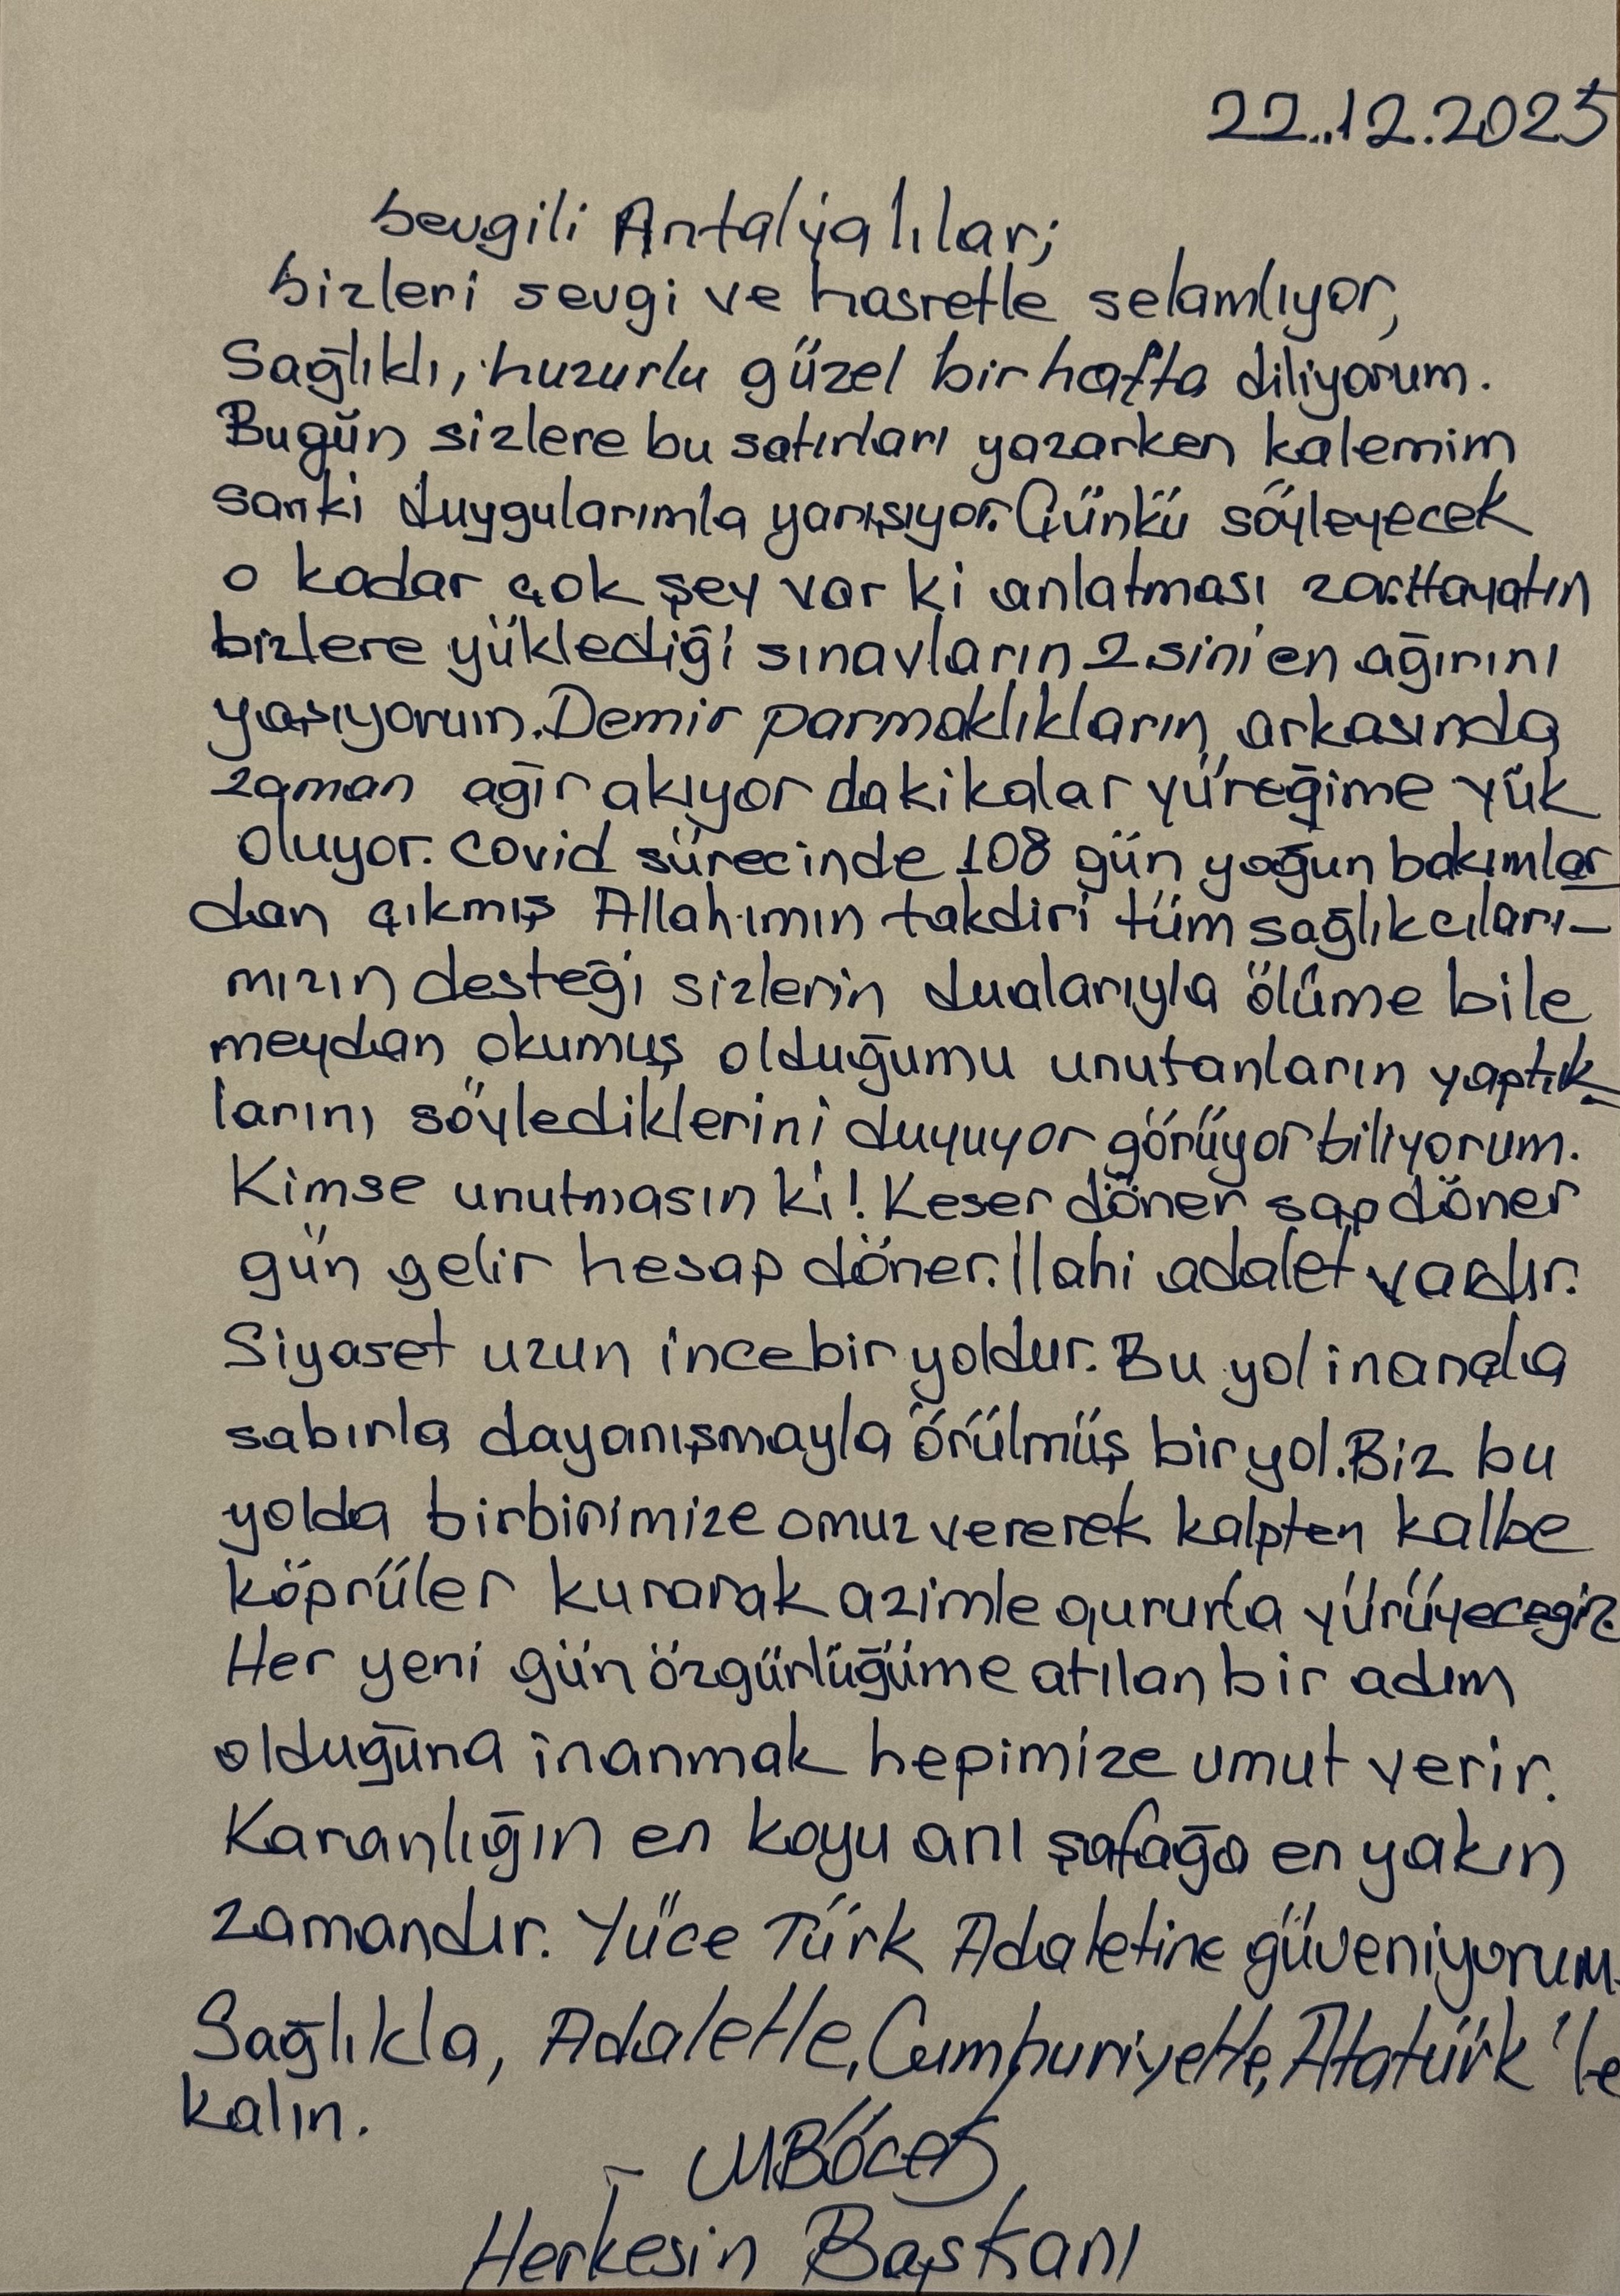 22..12.2025
Sevgili Antalyalılar;
Sizleri sevgi ve hasretle selamlıyor,
Sağlıklı, huzurlu güzel bir hafta diliyorum.
Bugün sizlere bu satırları yazarken kalemim
sanki duygularımla yarışıyor. Çünkü söyleyecek
o kadar çok şey var ki anlatması zor. Hayatın
bizlere yüklediği sınavların 2 sini en ağırını
yaşıyorum. Demir parmaklıkların arkasında
zaman ağır akıyor dakikalar yüreğime yük
oluyor. Covid sürecinde 108 gün yoğun bakımlar
dan çıkmış Allahımın takdiri tüm sağlıkcıları-
mızın desteği sizlerin dualarıyla ölüme bile
meydan okumuş olduğumu unutanların yaptık-
larını söylediklerini duyuyor görüyor biliyorum.
Kimse unutmasın ki! Keser döner sap döner
gün gelir hesap döner. İlahi adalet vardır.
Siyaset uzun ince bir yoldur. Bu yol inançla
sabırla dayanışmayla örülmüş bir yol. Biz bu
yolda birbirimize omuz vererek kalpten kalbe
köprüler kurarak azimle gururla yürüyecegiz.
Her yeni gün özgürlüğüme atılan bir adım
olduğuna inanmak hepimize umut verir.
Karanlığın en koyu anı şafağa en yakın
zamandır. Yüce Türk Adaletine güveniyorum.
Sağlıkla, Adaletle, Cumhuriyetle, Atatürk'le
kalın.
- MBöcek
Herkesin Başkanı